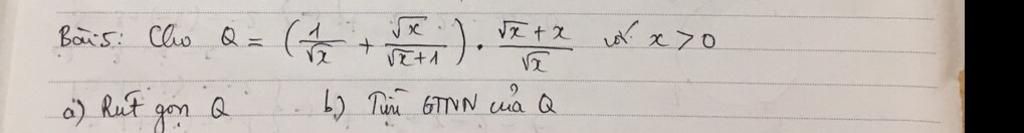 Bài 5: Cho Q = (1/√x + √x/(√x+1)) · (√x + x)/√x với x > 0
a) Rút gọn Q b) Tìm GTNN của Q